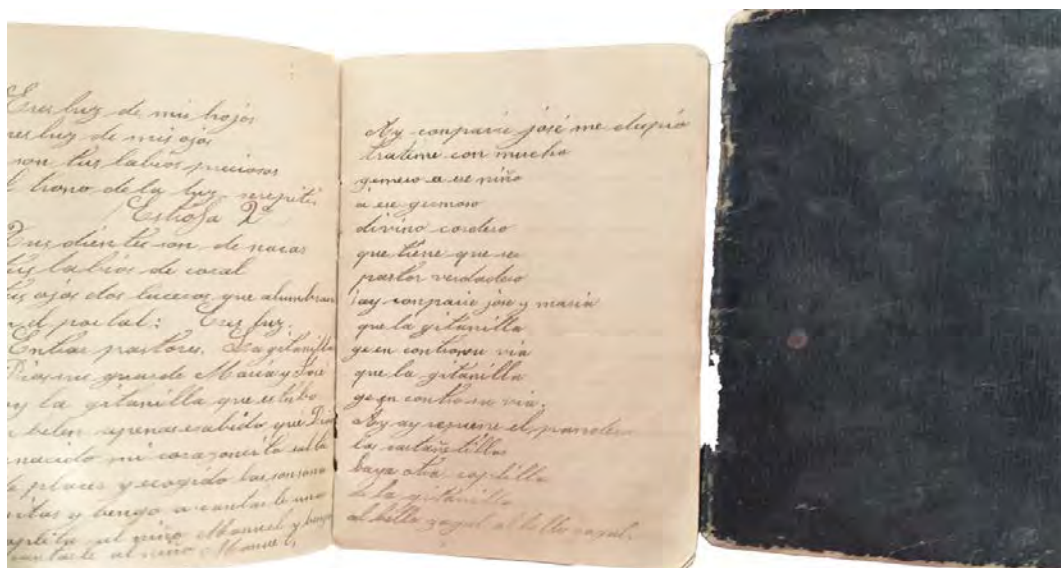 Eres luz de mis hojos
eres luz de mis ojos
son tus labios preciosos
el trono de la luz. serepite.
Estrofa 2ª
Tus dientes son de nacas
tus labios de coral
tus ojos dos luceros que alumbran
el portal: Eres luz.
Entran pastores. La gitanilla
Dios me guarde María y José
soy la gitanilla que estubo
belen apenas sabido que Dios
nacido mi corazoncito salta
de placer y ecogido las sonsona
y bengo a cantarle una
coplita al niño Manuel y baya
cantarle al niño Manuel,
Ay conpavie josé me elupió
trateme con mucho
gimero a ese niño
a ese germoso
divino cordero
que tiene que se
pastor verdadero
¡ay conpavie jose y maria
que la gitanilla
ge en controse via
que la gitanilla
ge en contro en via.
Ay ay repuene el pandero
las castañetillas
baya otra coplilla
de la gitanilla
al bello zagal al bello zagal.